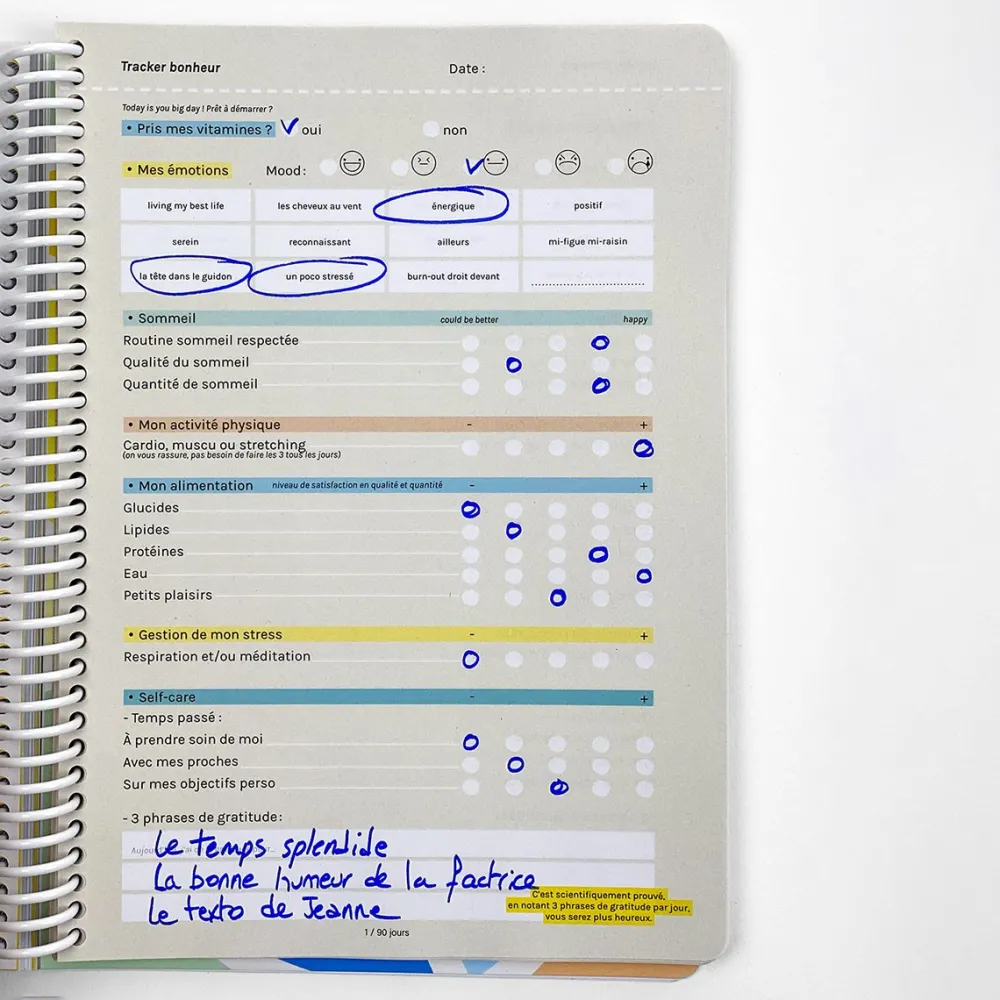 Tracker bonheur Date :
Today is you big day ! Prêt à démarrer ?
• Pris mes vitamines ? ✓ oui non
• Mes émotions Mood :
living my best life les cheveux au vent énergique positif
serein reconnaissant ailleurs mi-figue mi-raisin
la tête dans le guidon un poco stressé burn-out droit devant ..............................
• Sommeil could be better happy
Routine sommeil respectée
Qualité du sommeil
Quantité de sommeil
• Mon activité physique - +
Cardio, muscu ou stretching
(on vous rassure, pas besoin de faire les 3 tous les jours)
• Mon alimentation niveau de satisfaction en qualité et quantité - +
Glucides
Lipides
Protéines
Eau
Petits plaisirs
• Gestion de mon stress - +
Respiration et/ou méditation
• Self-care - +
- Temps passé :
À prendre soin de moi
Avec mes proches
Sur mes objectifs perso
- 3 phrases de gratitude :
Le temps splendide
La bonne humeur de la factrice
Le texto de Jeanne
C'est scientifiquement prouvé,
en notant 3 phrases de gratitude par jour,
vous serez plus heureux.
1 / 90 jours